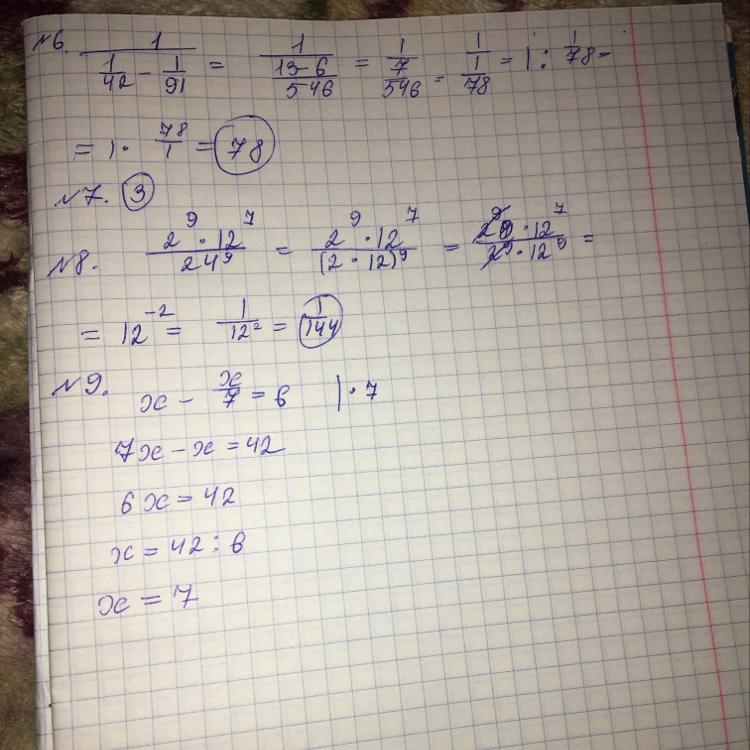 №6. 1/(1/42 - 1/91) = 1/((13-6)/546) = 1/(7/546) = 1/(1/78) = 1 : 1/78 =
= 1 · 78/1 = 78
№7. 3
№8. (2^9 · 12^7)/24^9 = (2^9 · 12^7)/(2 · 12)^9 = (2^9 · 12^7)/(2^9 · 12^9) =
= 12^-2 = 1/12^2 = 1/144
№9. x - x/7 = 6 | · 7
7x - x = 42
6x = 42
x = 42 : 6
x = 7